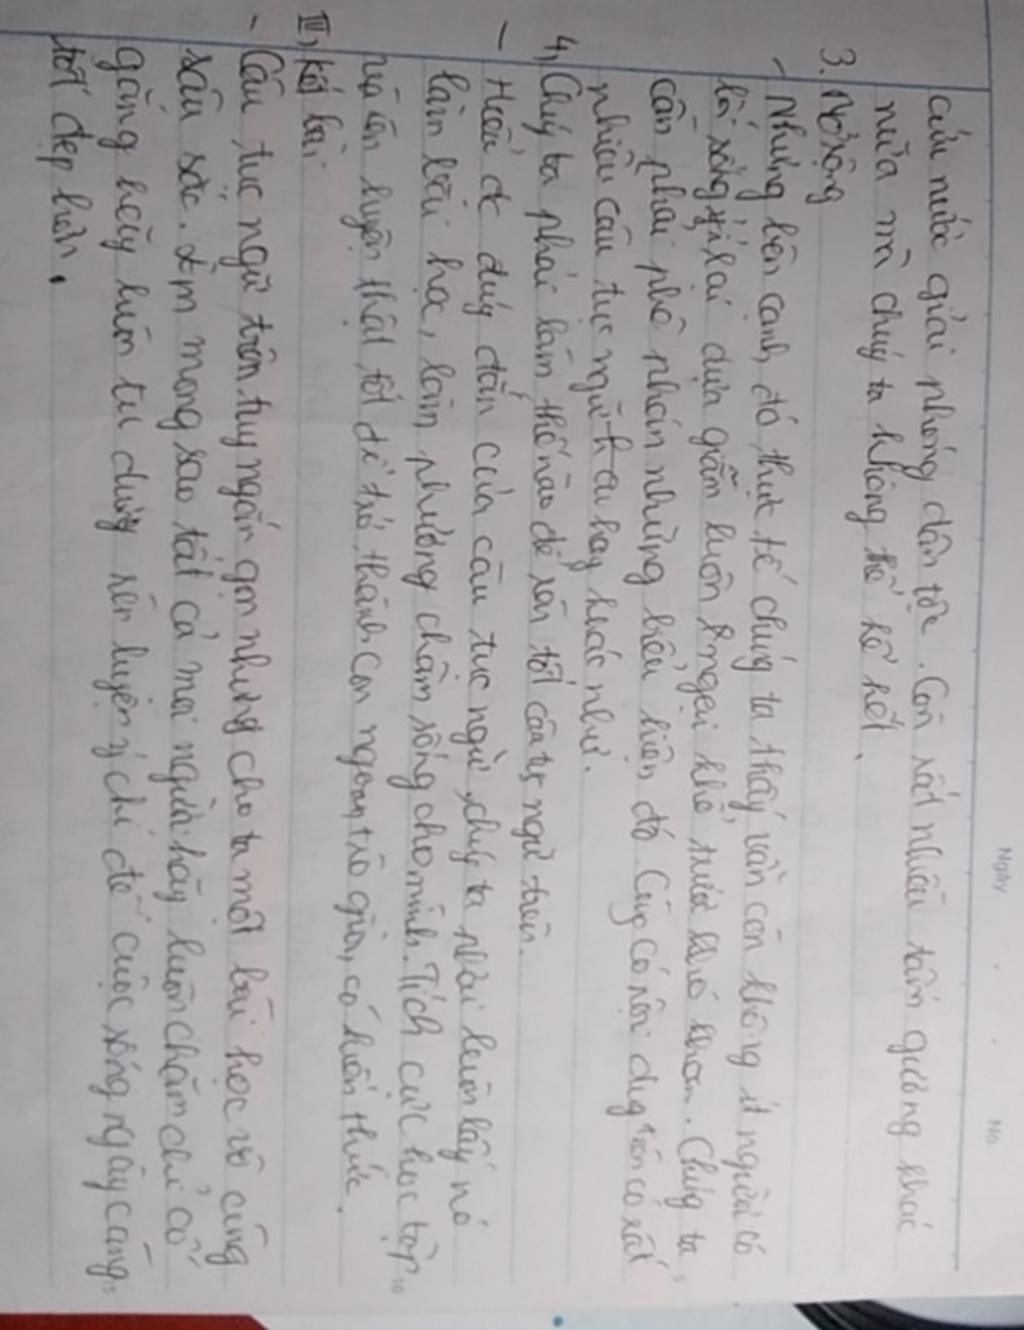 Ngày
No
cứu nước giải phóng dân tộc. Còn rất nhiều tấm gương khác
nữa mà chúng ta không thể kể hết.
3. Mở rộng
- Nhưng bên cạnh đó thực tế chúng ta thấy vẫn còn không ít người có
lối sống ỷ lại dựa giẫm luôn ngại khổ, trước khó khăn. Chúng ta
cần phải phê phán những biểu hiện đó. Cũng có nội dung trên có rất
nhiều câu tục ngữ hay khác như.
4, Chúng ta phải làm thế nào để rèn tốt câu tục ngữ trên.
- Hiểu đc đúng đắn của câu tục ngữ, chúng ta phải luôn lấy nó
làm bài học, làm phương châm sống cho mình. Tích cực học tập
rèn luyện thật tốt để trở thành con ngoan, trò giỏi, có kiến thức.
III, Kết bài:
- Câu tục ngữ trên tuy ngắn gọn nhưng cho ta một bài học vô cùng
sâu sắc. Em mong sao tất cả mọi người hãy luôn chăm chỉ cố
gắng hãy luôn tu dưỡng rèn luyện ý chí để cuộc sống ngày càng
tốt đẹp hơn.